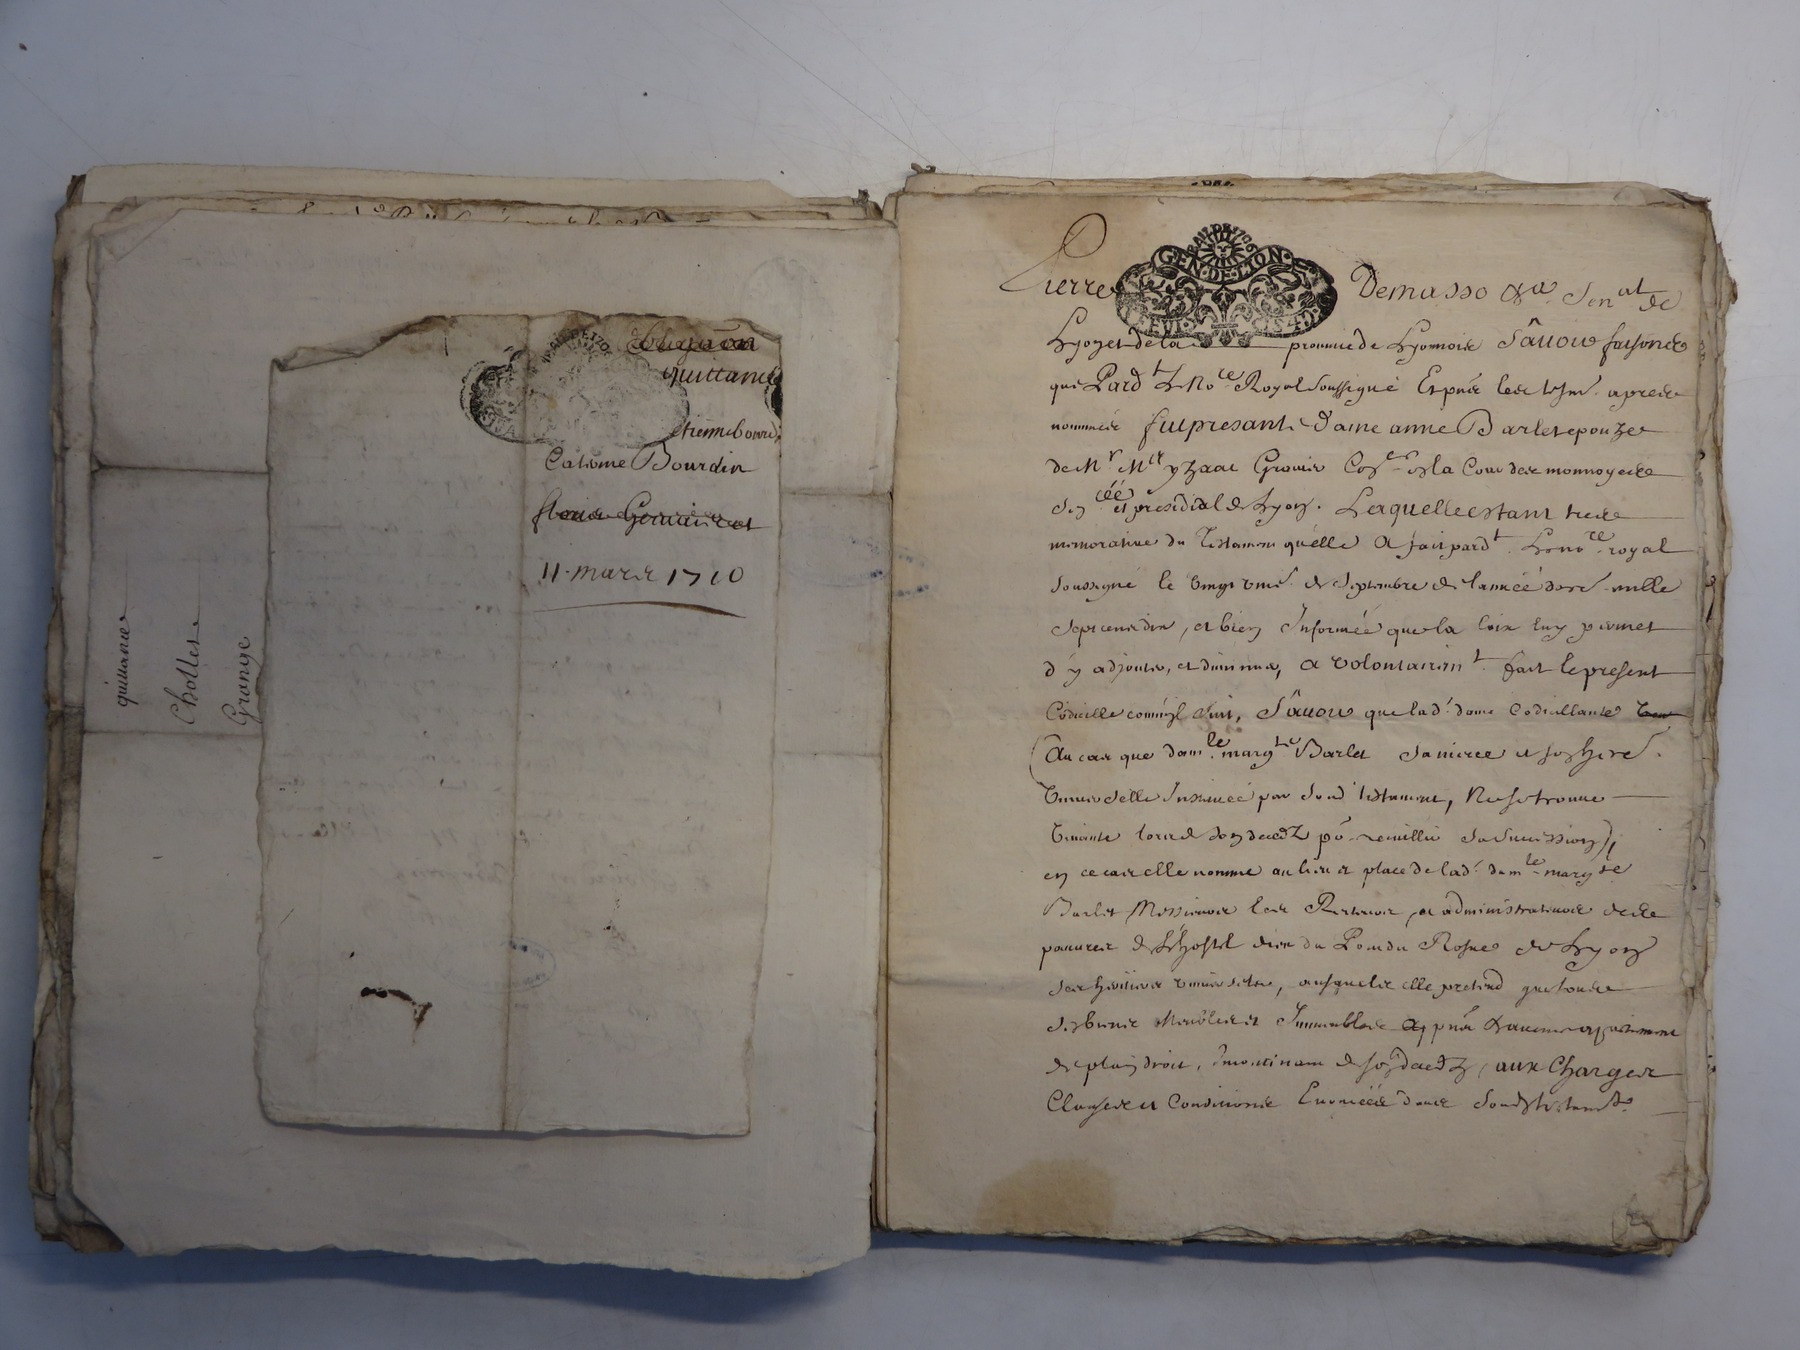 quittance
Chollet
Grange
Obligaon
quittance
Etienne bourdi
Catherine Bourdin
11. mars 1710
BAIL DE 1706
GEN·DE·LION·
Pierre Demasso &a Sen.al de
Lyon et de la prouince de Lyonnois Sauoir faisons
que Pard.t Le No.re Royal soussigné Et pnts les tesm. apres
nommés fut presante dame anne Barlet epouze
de M.r M.re yzaac Grouier Con.er en la Cour des monnoyes
Sen.cée et presidial de Lyon. Laquelle estant
memoratiue du Testament qu'elle A fait pard.t Le no.re royal
soussigné le vingt de Septembre de l'année der.e mille
Sept cens dix, et bien Informée que la loix luy permet
d'y adjouter, et diminuer, a volontairem.t fait le present
Codicille comme s'en suit, Sauoir que lad. dame Codicillante
Au cas que dam.lle marg.te Barlet sa niece et son her.e
Vniuerselle Instituée par son d. testament, Ne se trouue
Viuante lors de son decedz po. receuillir sa succession,
en ce cas elle nomme au lieu et place de lad. dam.lle marg.te
Barlet Messieurs les Recteurs et administrateurs des
pauures de L'hostel dieu du Pont du Rosne de Lyon
ses heritiers vniuersels, ausquels elle pretend que tous
ses biens Meubles et Immeubles
de plain droit, Incontinant de son decedz, aux Charges
Clauses et Conditions Enoncées dans son d. testam.t